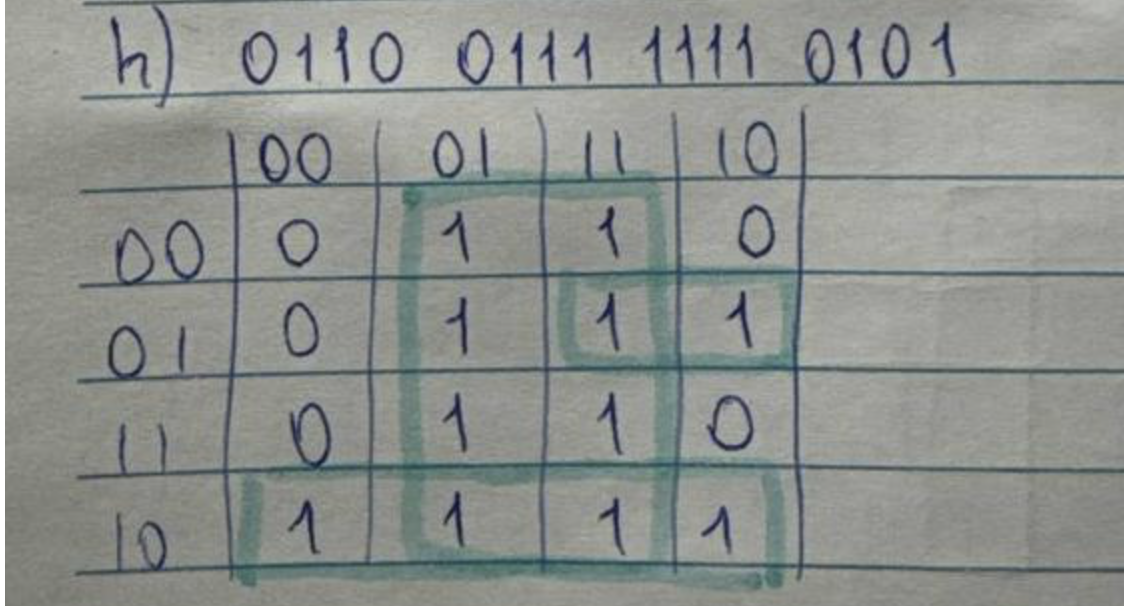 h) 0110 0111 1111 0101
00 01 11 10
00 0 1 1 0
01 0 1 1 1
11 0 1 1 0
10 1 1 1 1